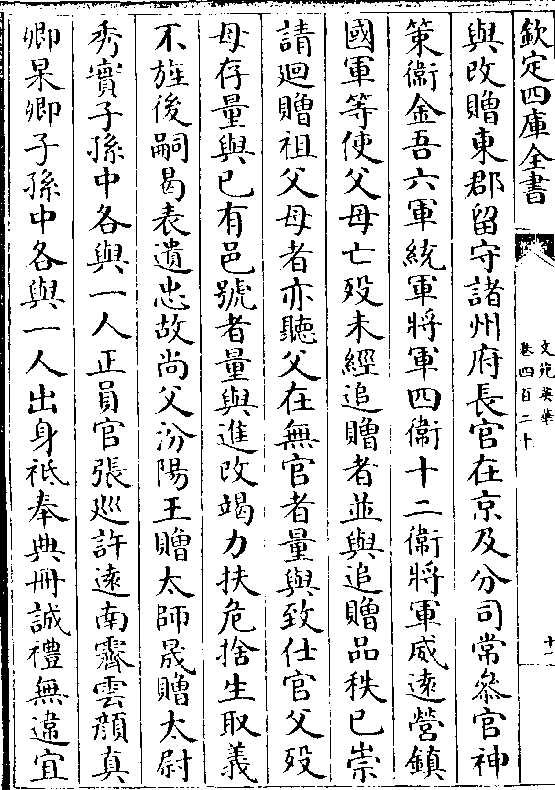 欽定四庫全書
文苑英華
卷四百二十
十一
與改贈東郡留守諸州府長官在京及分司常叅官神
策衛金吾六軍統軍將軍四衛十二衛將軍威逺營鎮
國軍等使父母亡殁未經追贈者並與追贈品秩已崇
請廻贈祖父母者亦聽父在無官者量與致仕官父殁
母存量與已有邑號者量與進改竭力扶危捨生取義
不旌後嗣曷表遺忠故尚父汾陽王贈太師晟贈太尉
秀實子孫中各與一人正員官張廵許逺南霽雲顔真
卿杲卿子孫中各與一人出身祗奉典冊誠禮無違宜